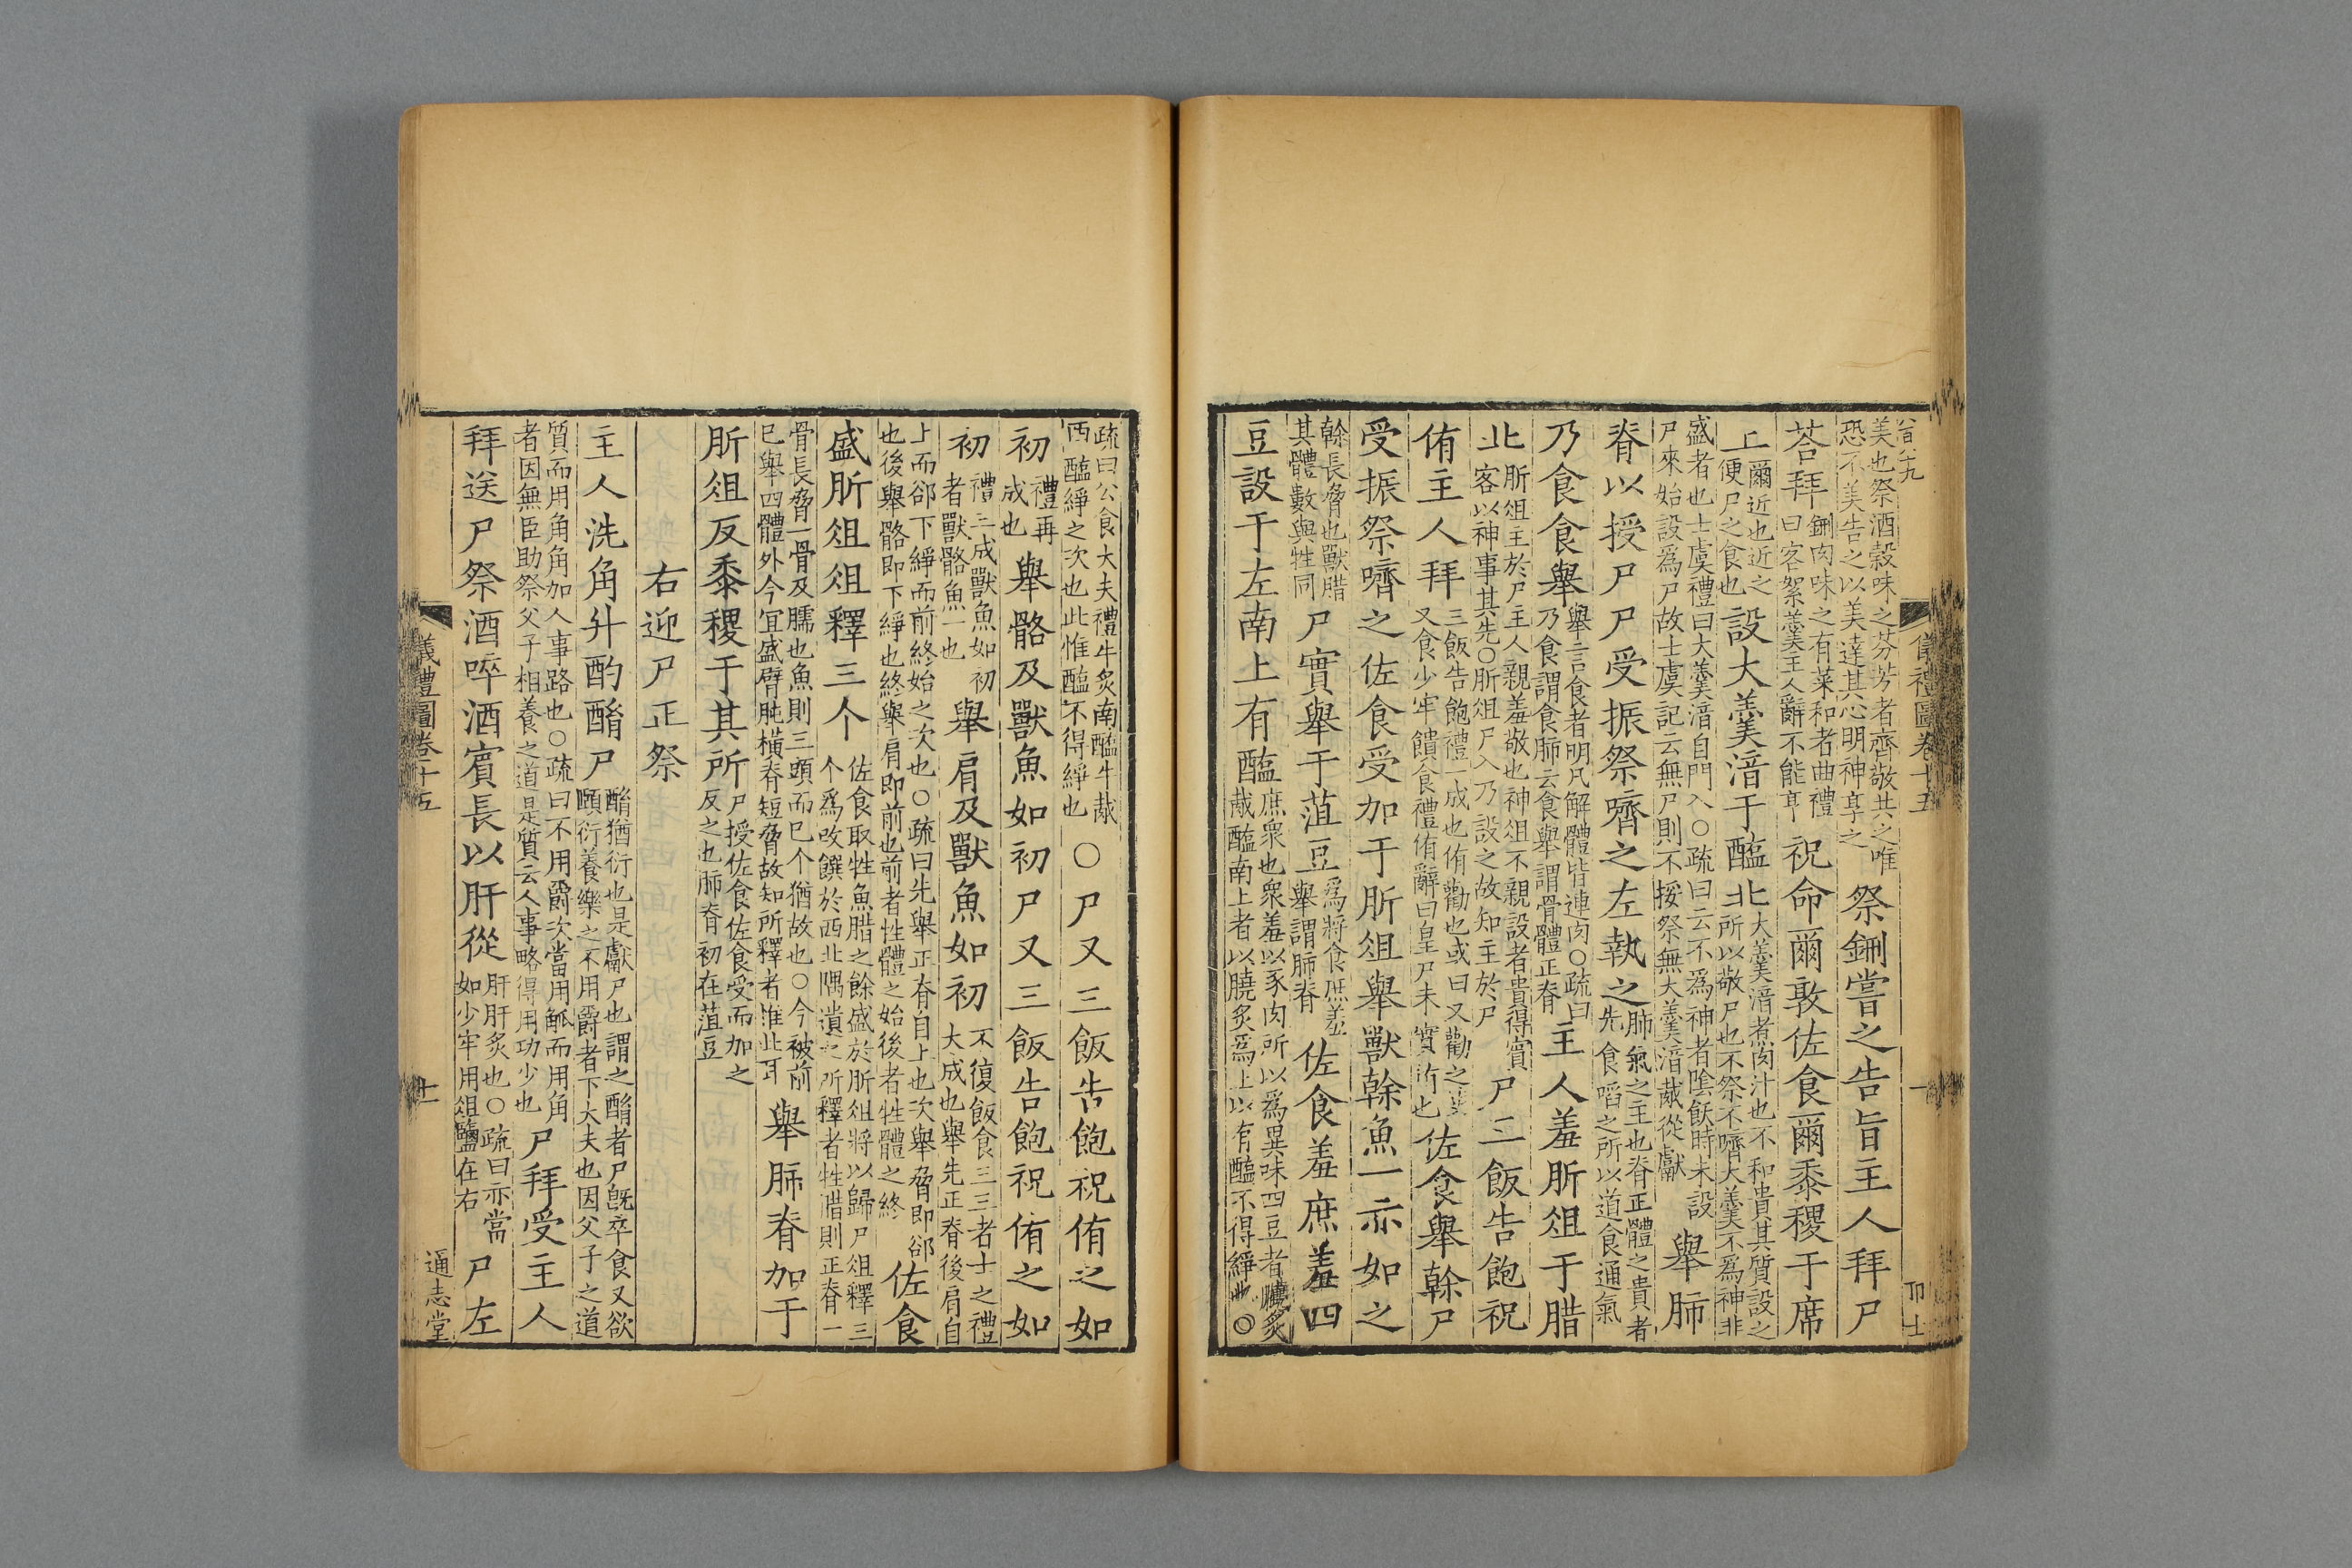 儀禮圖卷十五
美也祭酒穀味之芬芳者齊敬共之唯恐不美告之以美達其心明神享之祭鉶嘗之告旨主人拜尸
荅拜鉶肉味之有菜和者曲禮曰客絮羹主人辭不能亨祝命爾敦佐食爾黍稷于席
上爾近也近之便尸之食也設大羹湆于醢北大羹湆煮肉汁也不和貴其質設之所以敬尸也不祭不嚌大羹不爲神非
盛者也士虞禮曰大羹湆自門入○疏曰云不爲神者陰厭時未設尸來始設爲尸故士虞記云無尸則不授祭無大羹湆胾從獻舉肺
脊以授尸尸受振祭嚌之左執之肺氣之主也脊正體之貴者先食啗之所以道食通氣
乃食食舉舉言食者明凡解體皆連肉○疏曰乃食謂食肺云食舉謂骨體正脊主人羞肵俎于腊
北肵俎主於尸主人親羞敬也神俎不親設者貴得賓客以神事其先○肵俎尸入乃設之故知主於尸尸三飯告飽祝
侑主人拜三飯告飽禮一成也侑勸也或曰又勸之使又食少牢饋食禮侑辭曰皇尸未實侑也佐食舉幹尸
受振祭嚌之佐食受加于肵俎舉獸幹魚一亦如之
幹長脅也獸腊其體數與牲同尸實舉于菹豆爲將食庶羞舉謂肺脊佐食羞庶羞四
豆設于左南上有醢庶衆也衆羞以豕肉所以爲異味四豆者膮炙胾醢南上者以膮炙爲上以有醢不得綪也○
疏曰公食大夫禮牛炙南醢牛胾西醢綪之次也此惟醢不得綪也○尸又三飯告飽祝侑之如
初禮再成也舉骼及獸魚如初尸又三飯告飽祝侑之如
初禮三成獸魚如初者獸骼魚一也舉肩及獸魚如初不復飯食三三者士之禮大成也舉先正脊後肩自
上而郤下綪而前終始之次也○疏曰先舉正脊自上也次舉脅即郤也後舉骼即下綪也終舉肩即前也前者牲體之始後者牲體之終佐食
盛肵俎俎釋三个佐食取牲魚腊之餘盛於肵俎將以歸尸俎釋三个爲改饌於西北隅遺之所釋者牲腊則正脊一
骨長脅一骨及臑也魚則三頭而已个猶故也○今被前已舉四體外今宜盛臂肫橫脊短脅故知所釋者惟此耳舉肺脊加于
肵俎反黍稷于其所尸授佐食佐食受而加之反之也肺脊初在菹豆
右迎尸正祭
主人洗角升酌酳尸酳猶衍也是獻尸也謂之酳者尸旣卒食又欲頤衍養樂之不用爵者下大夫也因父子之道
質而用角角加人事路也○疏曰不用爵次當用觚而用角者因無臣助祭父子相養之道是質云人事略得用功少也尸拜受主人
拜送尸祭酒啐酒賓長以肝從肝肝炙也○疏曰亦當如少牢用俎鹽在右尸左
儀禮圖卷十五
十一
通志堂